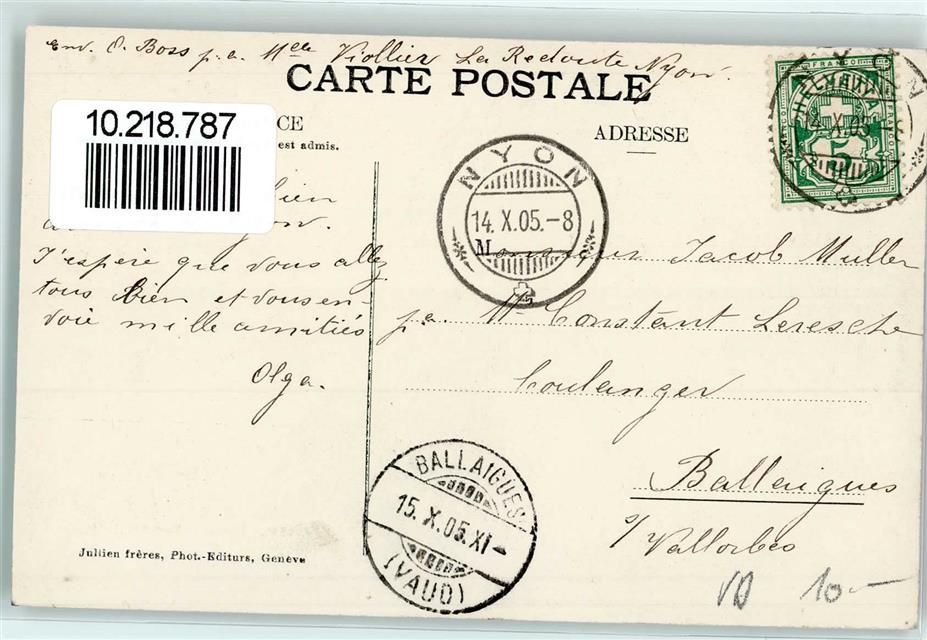 Env. O. Boss p. a. Melle Viollier La Redoute Nyon.
CARTE POSTALE
10.218.787
CE
est admis.
ADRESSE
FRANCO
HELVETIA
5
NYON
14.X.05.-8
NYON
14.X.05.-8
bien
Monsieur Jacob Muller
J'espère que vous allez
tous bien et vous en-
voie mille amitiés
Olga.
p. a. Mr. Constant Leresche
Boulanger
Ballaigues
s/ Vallorbes
BALLAIGUES
15.X.05.XI-
(VAUD)
Jullien frères, Phot.-Editurs, Genève
VD 10.-